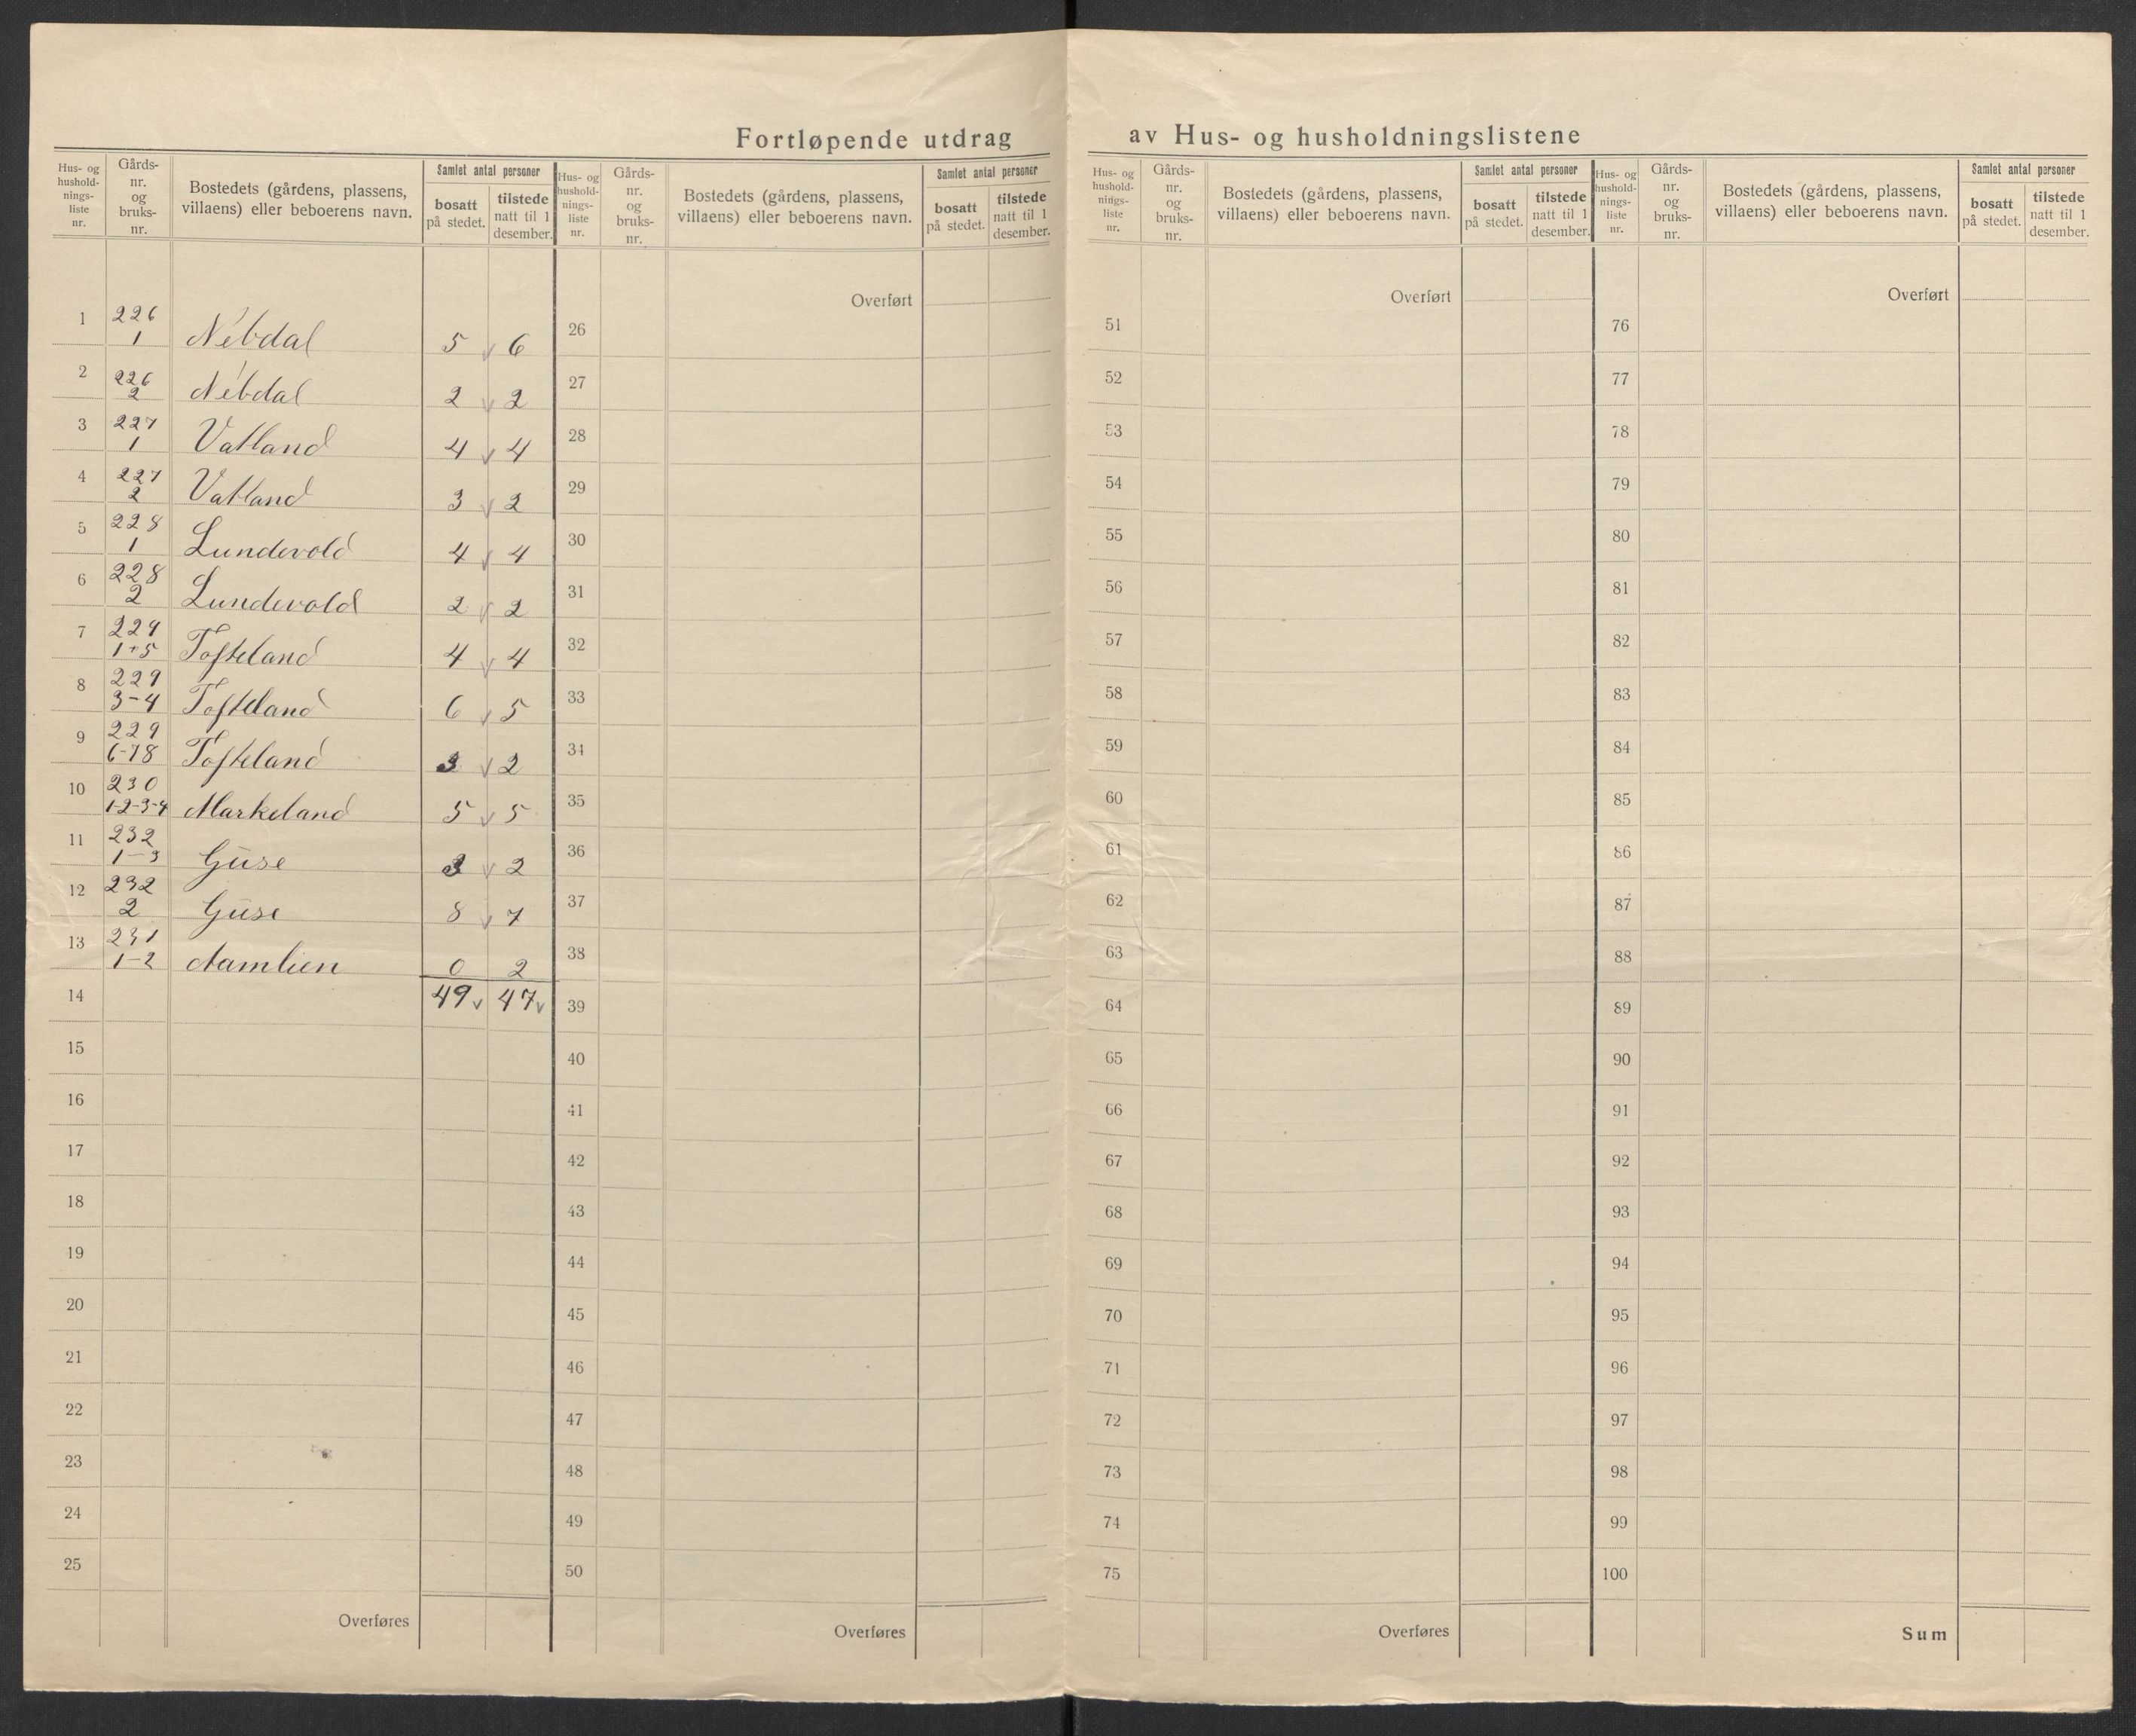 Fortløpende utdrag av Hus- og husholdningslistene
Hus- og hushold-nings-liste nr. | Gårds-nr. og bruks-nr. | Bostedets (gårdens, plassens, villaens) eller beboerens navn. | Samlet antal personer | bosatt på stedet. | tilstede natt til 1 desember.
1 226 1 Nebdal 5 v 6
2 226 2 Nebdal 2 v 2
3 227 1 Vatland 4 v 4
4 227 2 Vatland 3 v 2
5 228 1 Lundevold 4 v 4
6 228 2 Lundevold 2 v 2
7 229 1+5 Tofteland 4 v 4
8 229 3-4 Tofteland 6 v 5
9 229 6-78 Tofteland 3 v 2
10 230 1-2-3-4 Markeland 5 v 5
11 232 1-3 Guse 3 v 2
12 232 2 Guse 8 v 7
13 231 1-2 Aamlien 0 2
14 49 v 47 v
15
16
17
18
19
20
21
22
23
24
25
Overføres
Hus- og hushold-nings-liste nr. | Gårds-nr. og bruks-nr. | Bostedets (gårdens, plassens, villaens) eller beboerens navn. | Samlet antal personer | bosatt på stedet. | tilstede natt til 1 desember.
Overført
26
27
28
29
30
31
32
33
34
35
36
37
38
39
40
41
42
43
44
45
46
47
48
49
50
Overføres
Hus- og hushold-nings-liste nr. | Gårds-nr. og bruks-nr. | Bostedets (gårdens, plassens, villaens) eller beboerens navn. | Samlet antal personer | bosatt på stedet. | tilstede natt til 1 desember.
Overført
51
52
53
54
55
56
57
58
59
60
61
62
63
64
65
66
67
68
69
70
71
72
73
74
75
Overføres
Hus- og hushold-nings-liste nr. | Gårds-nr. og bruks-nr. | Bostedets (gårdens, plassens, villaens) eller beboerens navn. | Samlet antal personer | bosatt på stedet. | tilstede natt til 1 desember.
Overført
76
77
78
79
80
81
82
83
84
85
86
87
88
89
90
91
92
93
94
95
96
97
98
99
100
Sum